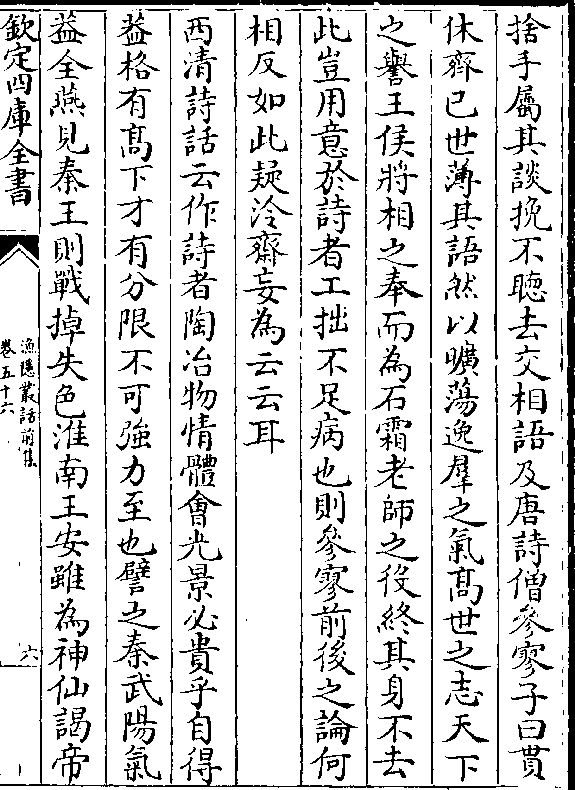 捨手屬其談挽不聴去交相語及唐詩僧參寥子曰貫
休齊已世薄其語然以曠蕩逸羣之氣髙世之志天下
之譽王侯將相之奉而為石霜老師之役終其身不去
此豈用意於詩者工拙不足病也則參寥前後之論何
相反如此疑泠齋妄為云云耳
西清詩話云作詩者陶冶物情體會光景必貴乎自得
葢格有髙下才有分限不可強力至也譬之秦武陽氣
葢全燕見秦王則戰掉失色淮南王安雖為神仙謁帝
欽定四庫全書
漁隱叢話前集
卷五十六
六